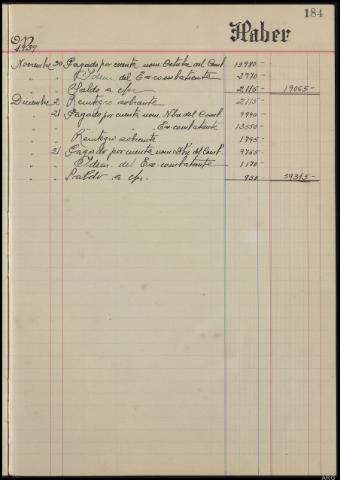 184
Haber
1939
Noviembre 30 Pagado por cuenta nom. Octubre del Comb. 13980 -
" " Idem del Ex-combatiente 2970 -
" " Saldo a c/n. 2115 - 19065 -
Diciembre 2 Reintegro sobrante 2115 -
" 21 Pagado por cuenta nom. Nbre del Comb. 9990 -
" " Ex-combatiente 13550 -
" " Reintegro sobrante 1795 -
" 21 Pagado por cuenta nom. del Comb. 9765 -
" " Idem. del Ex-combatiente 1170 -
" " Saldo a c/n. 930 - 39315 -